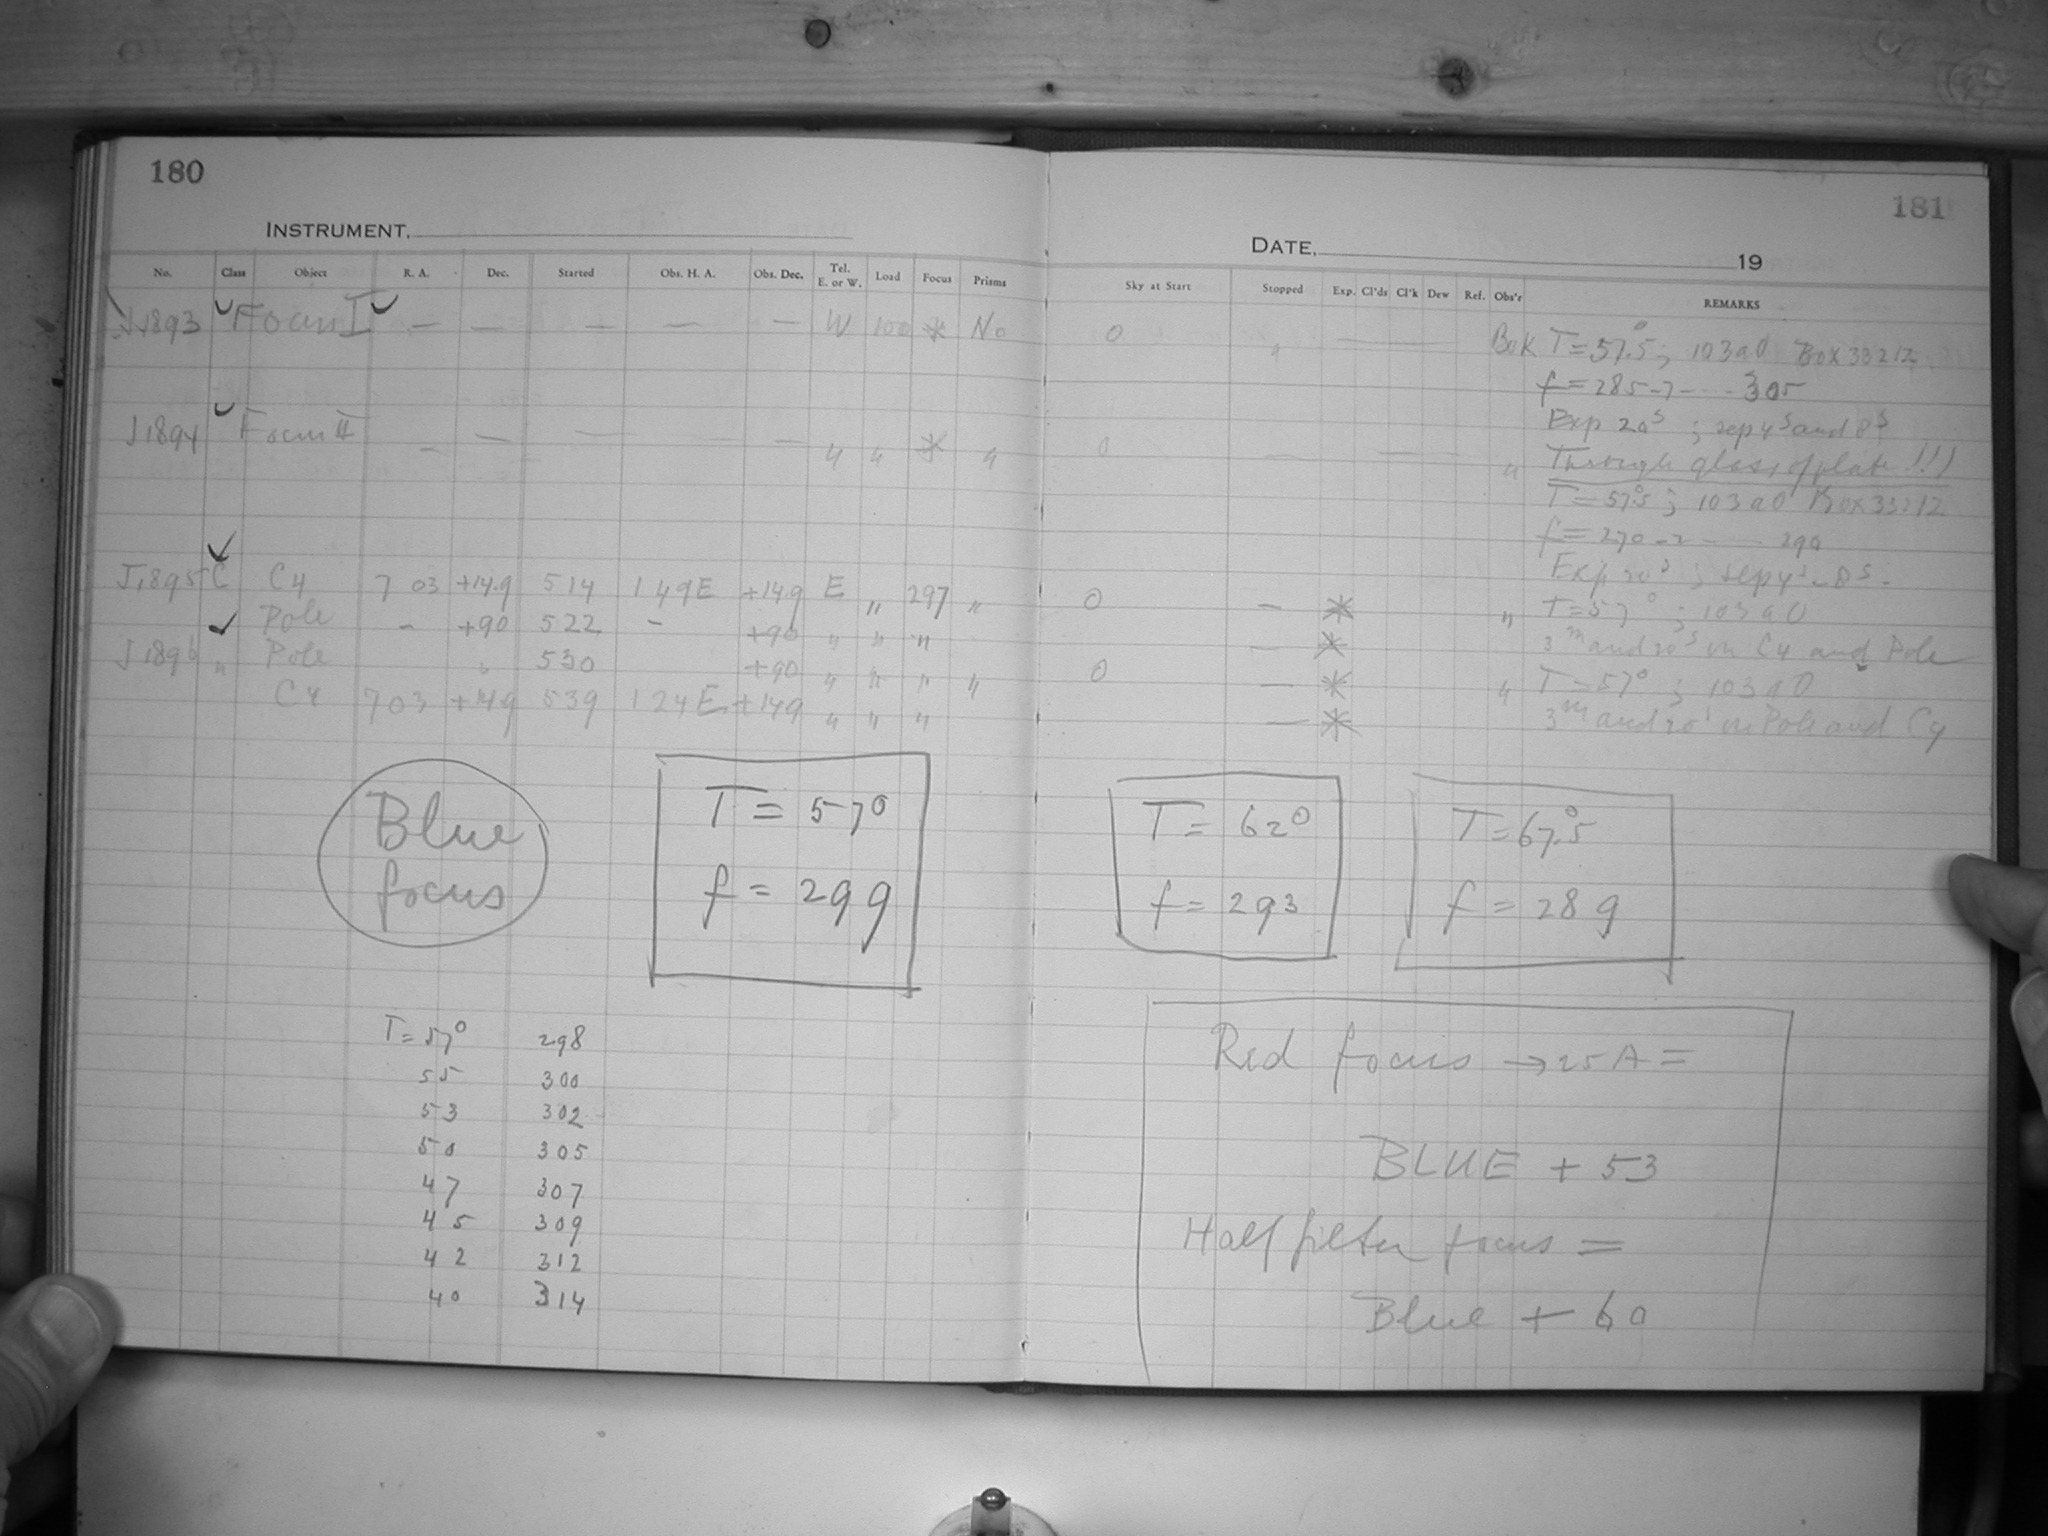 180
INSTRUMENT.
No. Class Object R. A. Dec. Started Obs. H. A. Obs. Dec. Tel. E. or W. Load Focus Prisms
J1893 Focus I — — — — — W 100 * No
J1894 Focus II — — — — " " * "
J1895 C C4 7 03 +14.9 5 14 1 49E +14.9 E " 297 "
Pole — +90 5 22 — +90 " " "
J1896 " Pole " 5 30 +90 " " " "
C4 7 03 +14.9 5 39 1 24E +14.9 " " "
Blue
focus
T = 57°
f = 299
T = 57° 298
55 300
53 302
50 305
47 307
45 309
42 312
40 314
181
DATE, 19
Sky at Start Stopped Exp. Cl'ds Cl'k Dew Ref. Obs'r REMARKS
0 Bok T = 57.5°; 103aO Box 33212
f = 285 → --- 305
Exp 20s ; sep 4s and 8s
0 — — " Through glass of plate !!!
T = 57.5°; 103aO Box 33212
f = 270 --- 290
Exp 20s ; sep 4s - 8s.
0 — * " T = 57° ; 103aO
— * 3m and 20s on C4 and Pole
0 — * " T = 57° ; 103aO
— * 3m and 20s on Pole and C4
T = 62°
f = 293
T = 67.5°
f = 289
Red focus → 25 A =
BLUE + 53
Half filter focus =
Blue + 60